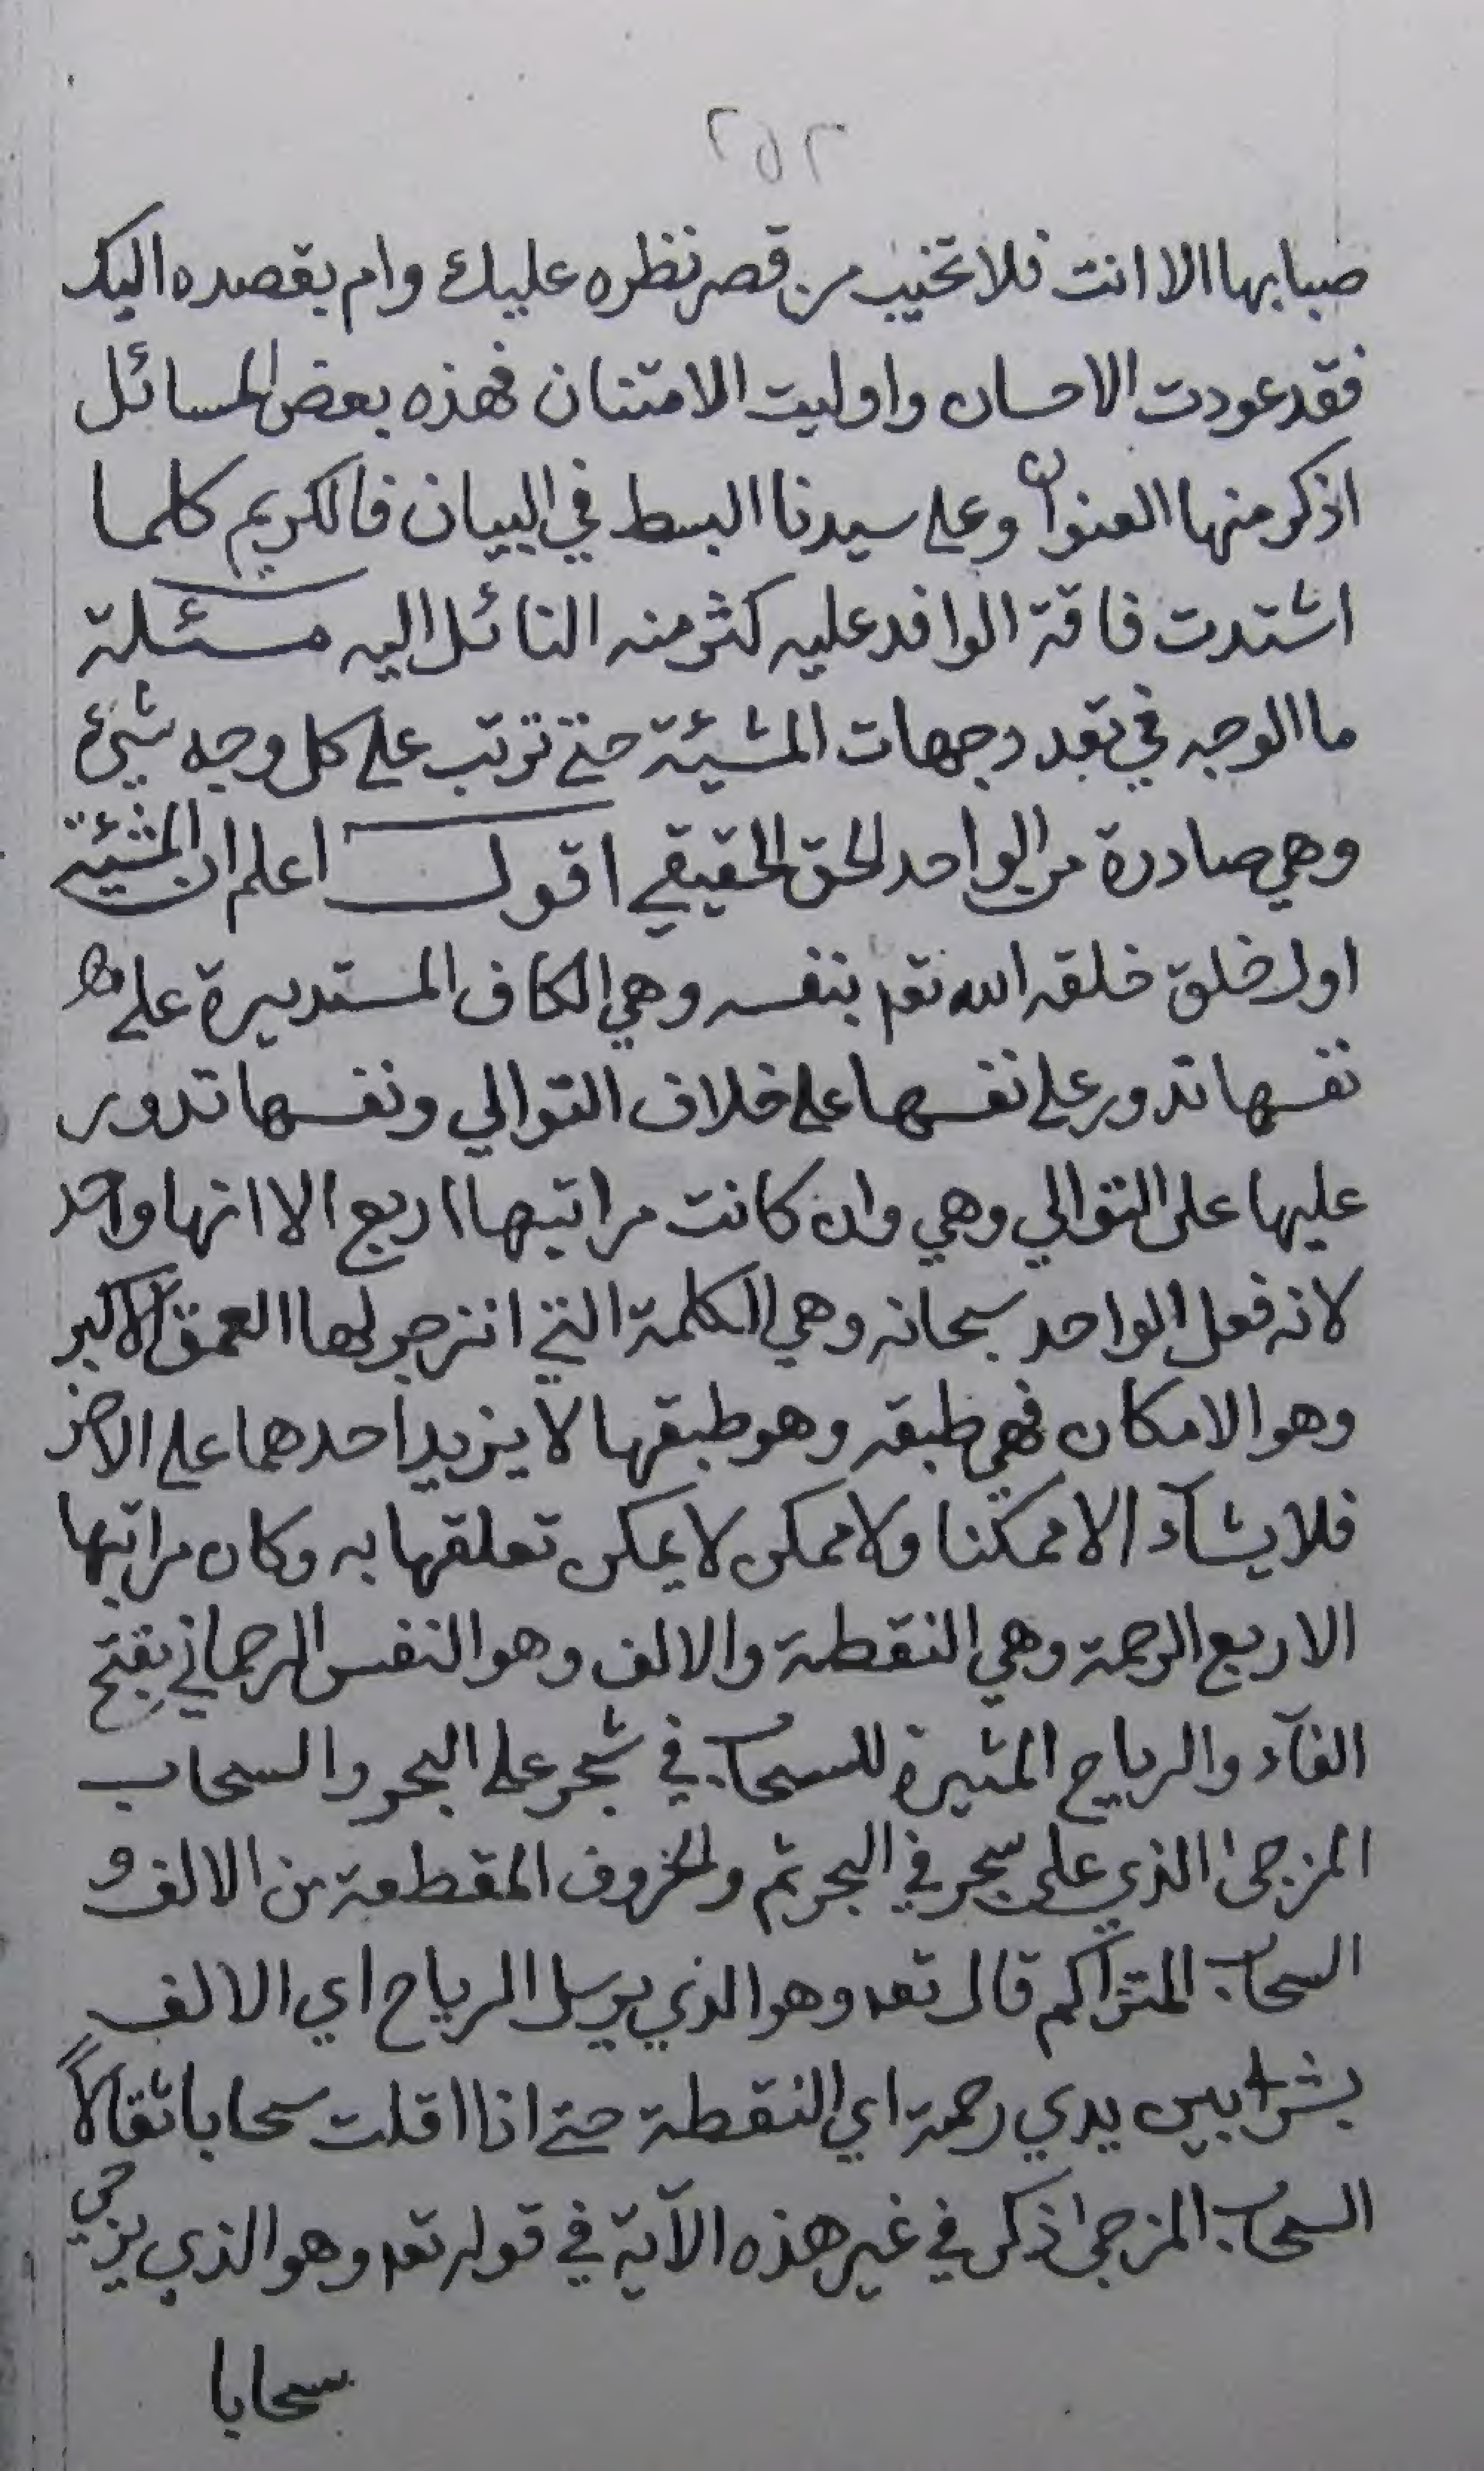 ٢٥٢
ضبابها الا انت فلا تخيب من قصر نظره عليك وام بقصده اليك
فقد عودت الاحسان واوليت الامتنان فهذه بعض المسائل
اذكر منها العنوان وعلى سيدنا البسط في البيان فالكريم كلما
اشتدت فاقة الوافد عليه كثر منه النائل اليه مسئلة
ما الوجه في تعدد جهات المشيئة حتى ترتب على كل وجه شيئ
وهي صادرة من الواحد الحق الحقيقي اقول اعلم ان المشيئة
اول خلق خلقه الله تعم بنفسه وهي الكاف المستديرة على
نفسها تدور على نفسها على خلاف التوالي ونفسها تدور
عليها على التوالي وهي وان كانت مراتبها اربع الا انها واحد
لانه فعل الواحد سبحانه وهي الكلمة التي انزجر لها العمق الاكبر
وهو الامكان فهي طبقه وهو طبقها لا يزيد احدهما على الاخر
فلا يشآء الا ممكنا ولا ممكن لا يمكن تعلقها به وكان مراتبها
الاربع الرحمة وهي النقطة والالف وهو النفس الرحماني بفتح
الفآء والرياح المثيرة للسحاب في شجر على البحر والسحاب
المزجى الذي على شجر في البحر ثم والحروف المقطعة من الالف و
السحاب المتراكم قال تعه وهو الذي يرسل الرياح اي الالف
بشرا بين يدي رحمة اي النقطة حتى اذا اقلت سحابا ثقالاً
السحاب المزجى ذكر في غير هذه الآية في قوله تعه وهو الذي يزجي
سحابا